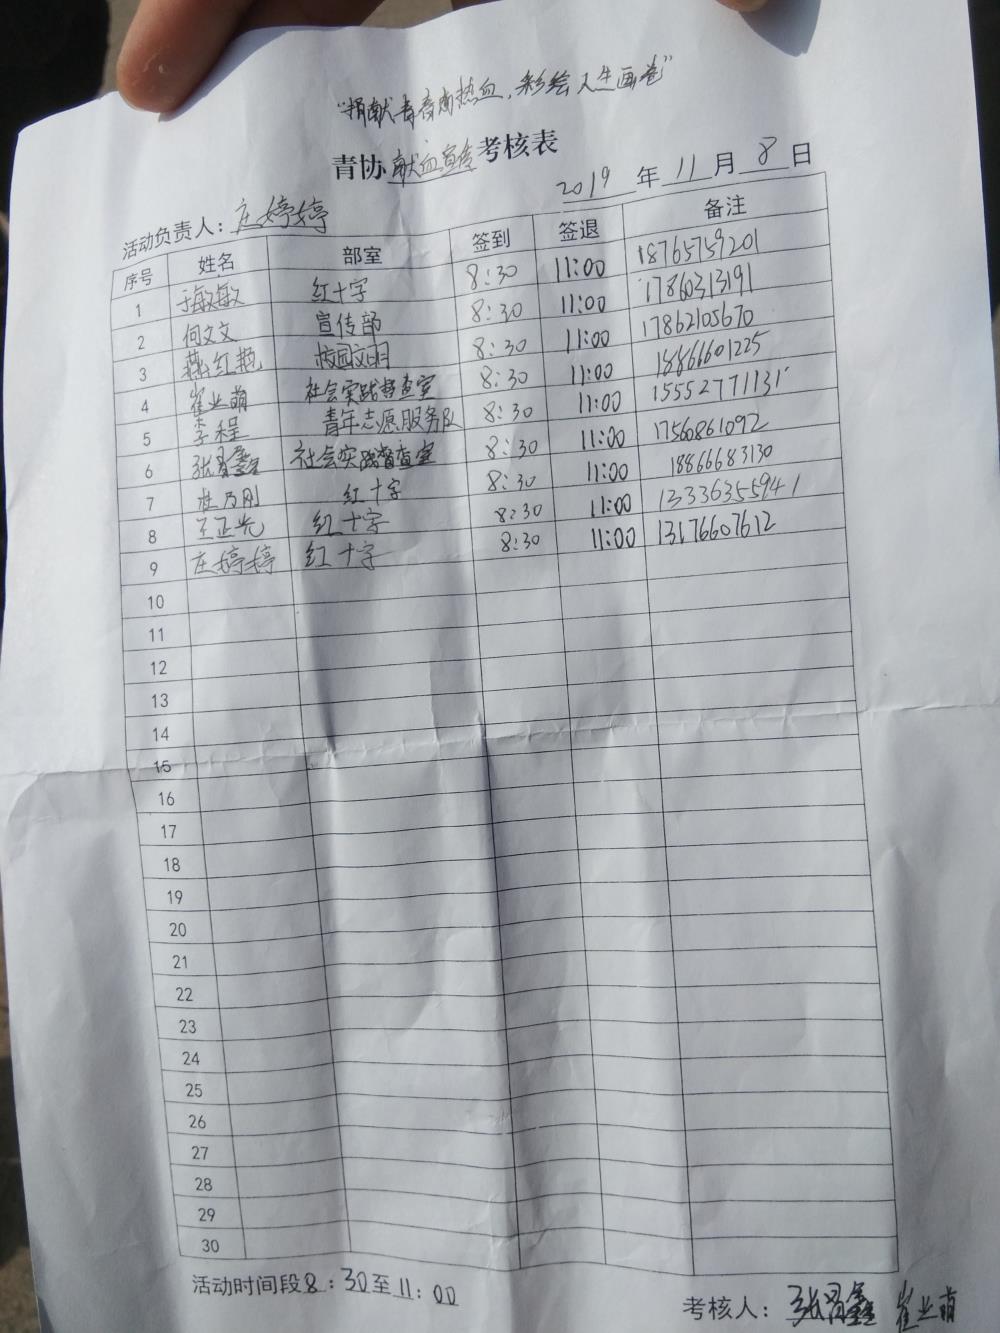 “捐献青春的热血，彩绘人生画卷”
青协献血宣传考核表
2019年11月8日
活动负责人：庄婷婷
序号 姓名 部室 签到 签退 备注
1 于敏敏 红十字 8:30 11:00 18765759201
2 何文文 宣传部 8:30 11:00 17860313191
3 燕红艳 校园文明 8:30 11:00 17862105670
4 崔业萌 社会实践督查室 8:30 11:00 18866601225
5 李程 青年志愿服务队 8:30 11:00 15552771131
6 张鑫 社会实践督查室 8:30 11:00 1756861092
7 杜乃刚 红十字 8:30 11:00 18866683130
8 王正光 红十字 8:30 11:00 13336355941
9 庄婷婷 红十字 8:30 11:00 13176607612
10
11
12
13
14
15
16
17
18
19
20
21
22
23
24
25
26
27
28
29
30
活动时间段8：30至11：00
考核人：张鑫 崔业萌